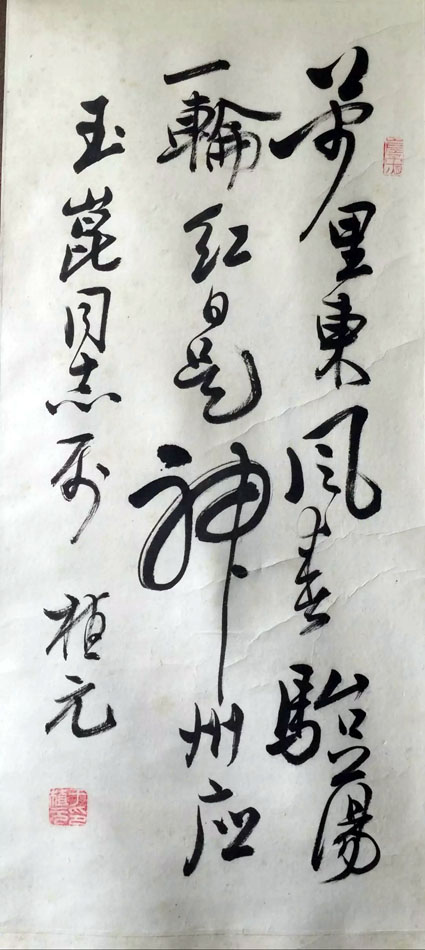 萬里東风春駘蕩
一輪红日是神州应
玉崑同志属 植元